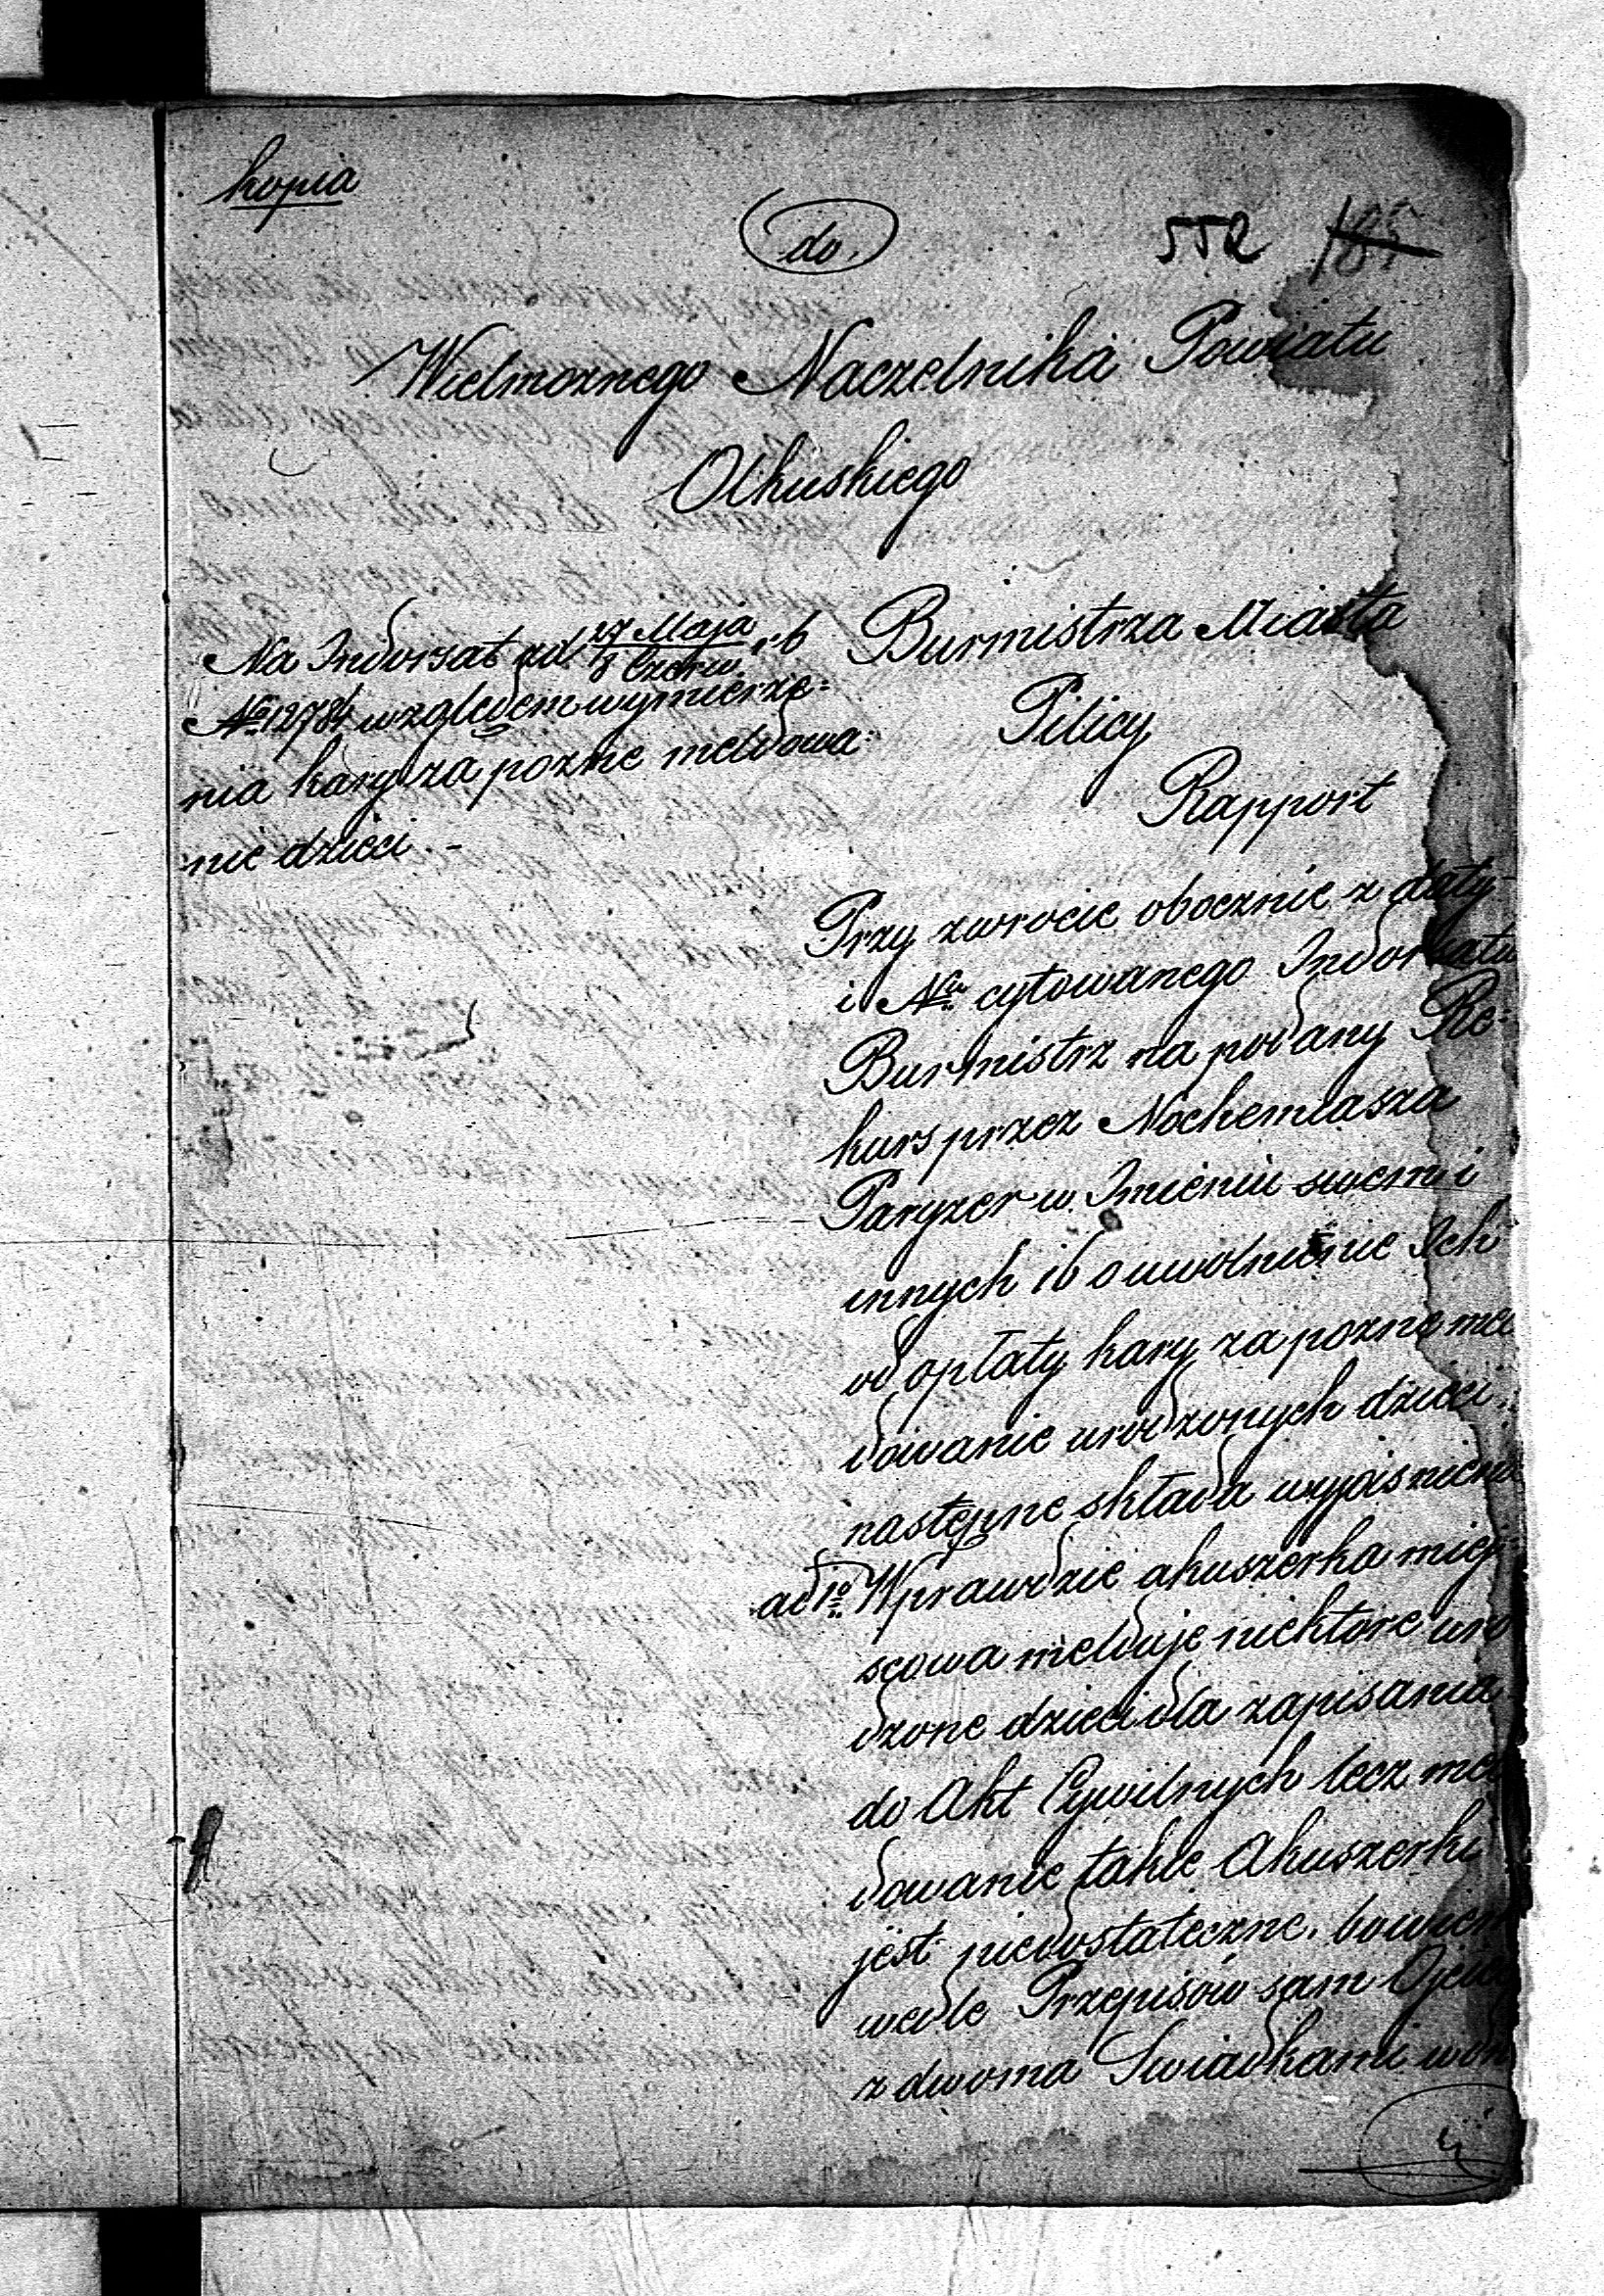 kopia
do.
552 185
Wielmoznego Naczelnika Powiatu
Olkuskiego
Na Indorsat z d. 27 Maja r b
8 Czerw.
No 12784 względem wymierze=
nia kary za pozne meldowa=
nie dzieci. -
Burmistrza Miasta
Pilicy
Rapport
Przy zwrocie obocznie z daty
i Nru cytowanego Indorsatu
Burmistrz na podany Re=
kurs przez Nochemiasza
Paryzer w Imieniu swem i
innych 16 o uwolnienie Ich
od opłaty kary za pozne mel
dowanie urodzonych dzieci,
następne składa wyjasnienia
ad 1o Wprawdzie akuszerka miej
scowa melduje niektore uro
dzone dzieci dla zapisania
do Akt Cywilnych lecz mel
dowanie takie Akuszerki
jest niedostateczne, bowiem
wedle Przepisów sam Ojciec
z dwoma Swiadkami win